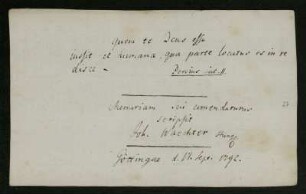 quem te Deus esse
iussit et humana qua parte locatus es in re
disce –
Memoriam sui commendaturus
scripsit
Joh. Waechter
Göttingae d. Sept. 1792.